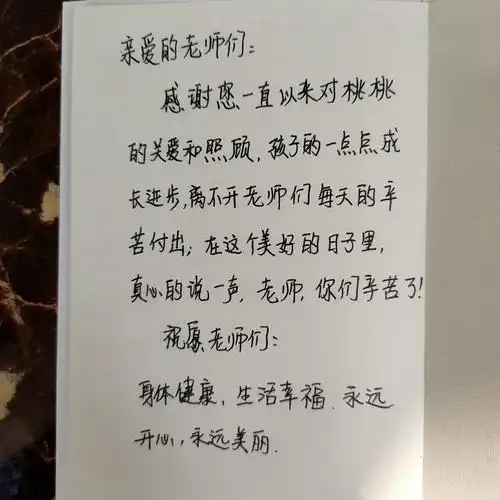 亲爱的老师们:
感谢您一直以来对桃桃
的关爱和照顾,孩子的一点点成
长进步,离不开老师们每天的辛
苦付出;在这个美好的日子里,
真心的说一声,老师,你们辛苦了!
祝愿老师们:
身体健康,生活幸福、永远
开心,永远美丽.